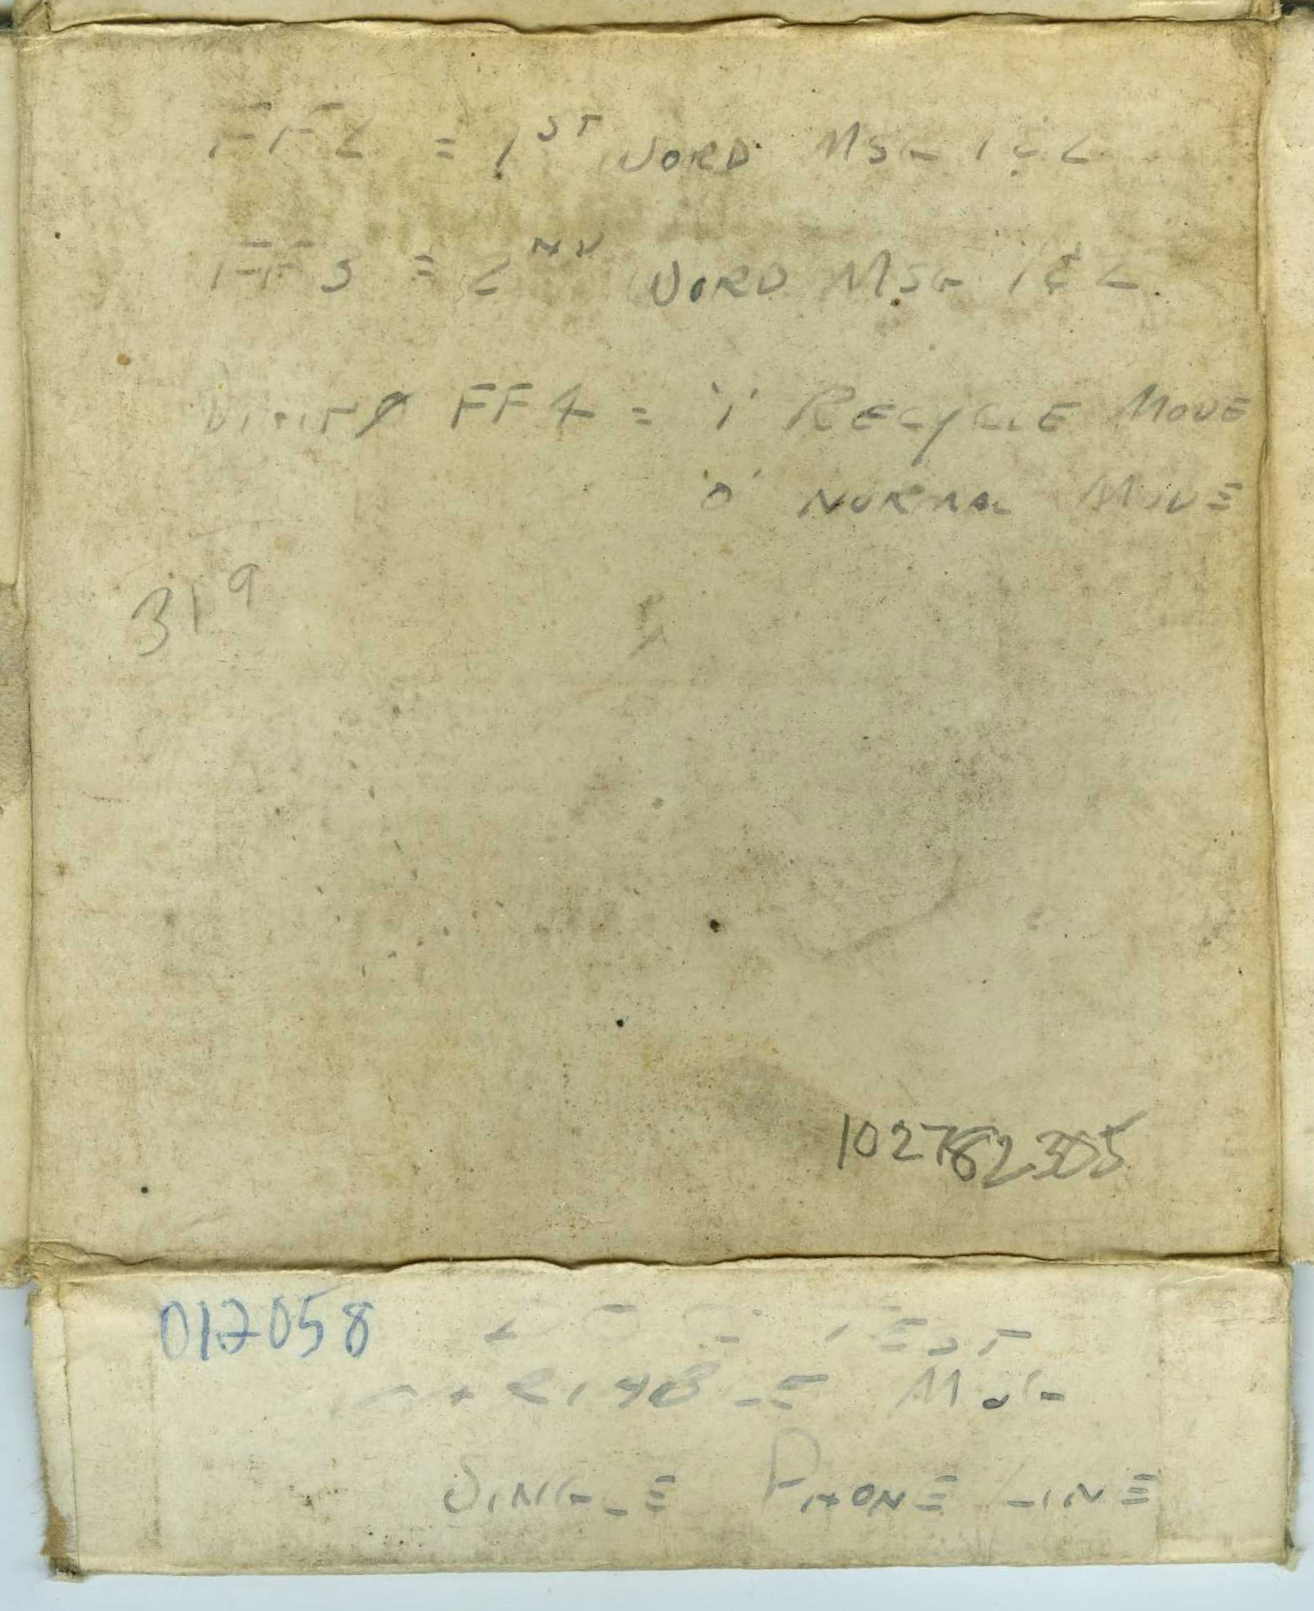 FF2 = 1ST WORD MSG 1 & 2
FF3 = 2ND WORD MSG 1 & 2
DIGIT Ø FF4 = '1' RECYCLE MODE
'0' NORMAL MODE
319
102782305
017058
TEST
VARIABLE MSG
SINGLE PHONE LINE